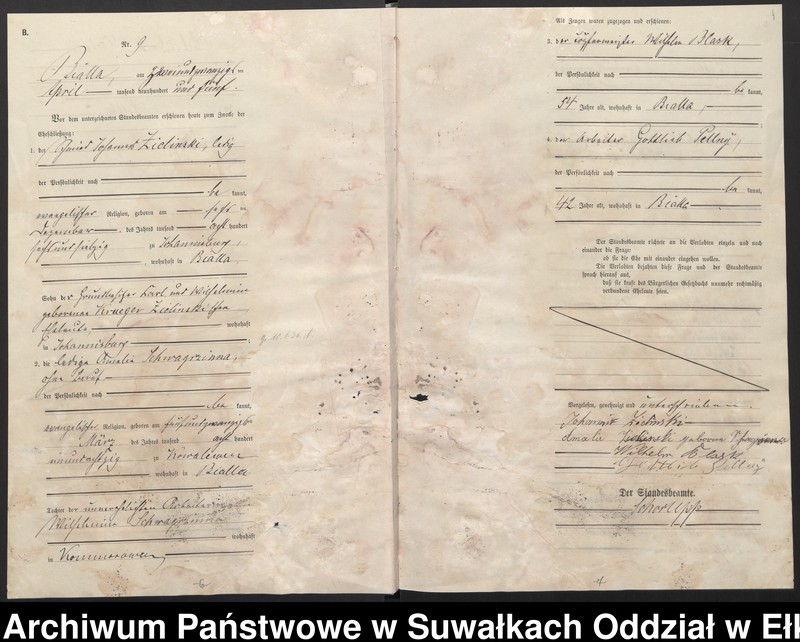 B.
Nr. 9
Bialla, am zweiundzwanzigsten
April tausend neunhundert und fünf.
Vor dem unterzeichneten Standesbeamten erschienen heute zum Zwecke der
Eheschließung:
1. der Schmied Johannes Zielinski, ledig
der Persönlichkeit nach
be kannt,
evangelischer Religion, geboren am sechsten
Dezember des Jahres tausend acht hundert
sechsundsiebzig zu Johannisburg,
, wohnhaft in Bialla,
Sohn der Grundbesitzer Karl und Wilhelmine
geborenen Krueger Zielinskischen
Eheleute wohnhaft
in Johannisburg ;
2. die ledige Amalie Schwagrzinna,
ohne Beruf
der Persönlichkeit nach
be kannt,
evangelischer Religion, geboren am fünfundzwanzigsten
März des Jahres tausend acht hundert
neunundachtzig zu Kowalewen
wohnhaft in Bialla
Tochter der unverehelichten Arbeiterin
Wilhelmine Schwagrzinna
wohnhaft
in Kommorowen
Als Zeugen waren zugezogen und erschienen:
3. der Töpfermeister Wilhelm Blask,
der Persönlichkeit nach
be kannt,
54 Jahre alt, wohnhaft in Bialla,
4. der Arbeiter Gottlieb Sellny,
der Persönlichkeit nach
be kannt,
42 Jahre alt, wohnhaft in Bialla
Der Standesbeamte richtete an die Verlobten einzeln und nach
einander die Frage:
ob sie die Ehe mit einander eingehen wollen.
Die Verlobten bejahten diese Frage und der Standesbeamte
sprach hierauf aus,
daß sie kraft des Bürgerlichen Gesetzbuchs nunmehr rechtmäßig
verbundene Eheleute seien.
Vorgelesen, genehmigt und unterschrieben.
Johannes Zielinski
Amalie Zielinski geborene Schwagrzinna
Wilhelm Blask
Gottlieb Sellny
Der Standesbeamte.
Archiwum Państwowe w Suwałkach Oddział w Eł